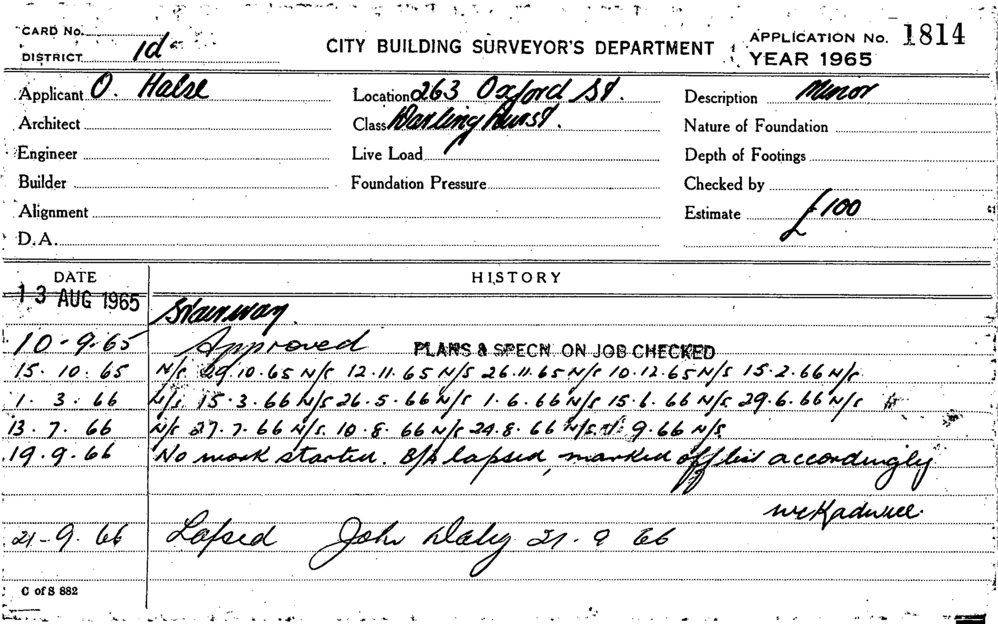 CARD No.
DISTRICT 1d
CITY BUILDING SURVEYOR'S DEPARTMENT
APPLICATION No. 1814
YEAR 1965
Applicant O. Halse
Location 263 Oxford St.
Description Minor
Architect
Class Darlinghurst.
Nature of Foundation
Engineer
Live Load
Depth of Footings
Builder
Foundation Pressure
Checked by
Alignment
Estimate £100
D.A.
DATE
HISTORY
13 AUG 1965 Stairway.
10-9-65 Approved PLANS & SPECN. ON JOB CHECKED
15.10.65 N/S 29.10.65 N/S 12.11.65 N/S 26.11.65 N/S 10.12.65 N/S 15.2.66 N/S
1.3.66 N/S 15.3.66 N/S 26.5.66 N/S 1.6.66 N/S 15.6.66 N/S 29.6.66 N/S
13.7.66 N/S 27.7.66 N/S 10.8.66 N/S 24.8.66 N/S 9.66 N/S
19.9.66 No work started. B/A lapsed, marked off list accordingly
21-9-66 Lapsed John Daly 21.9.66
C of S 882